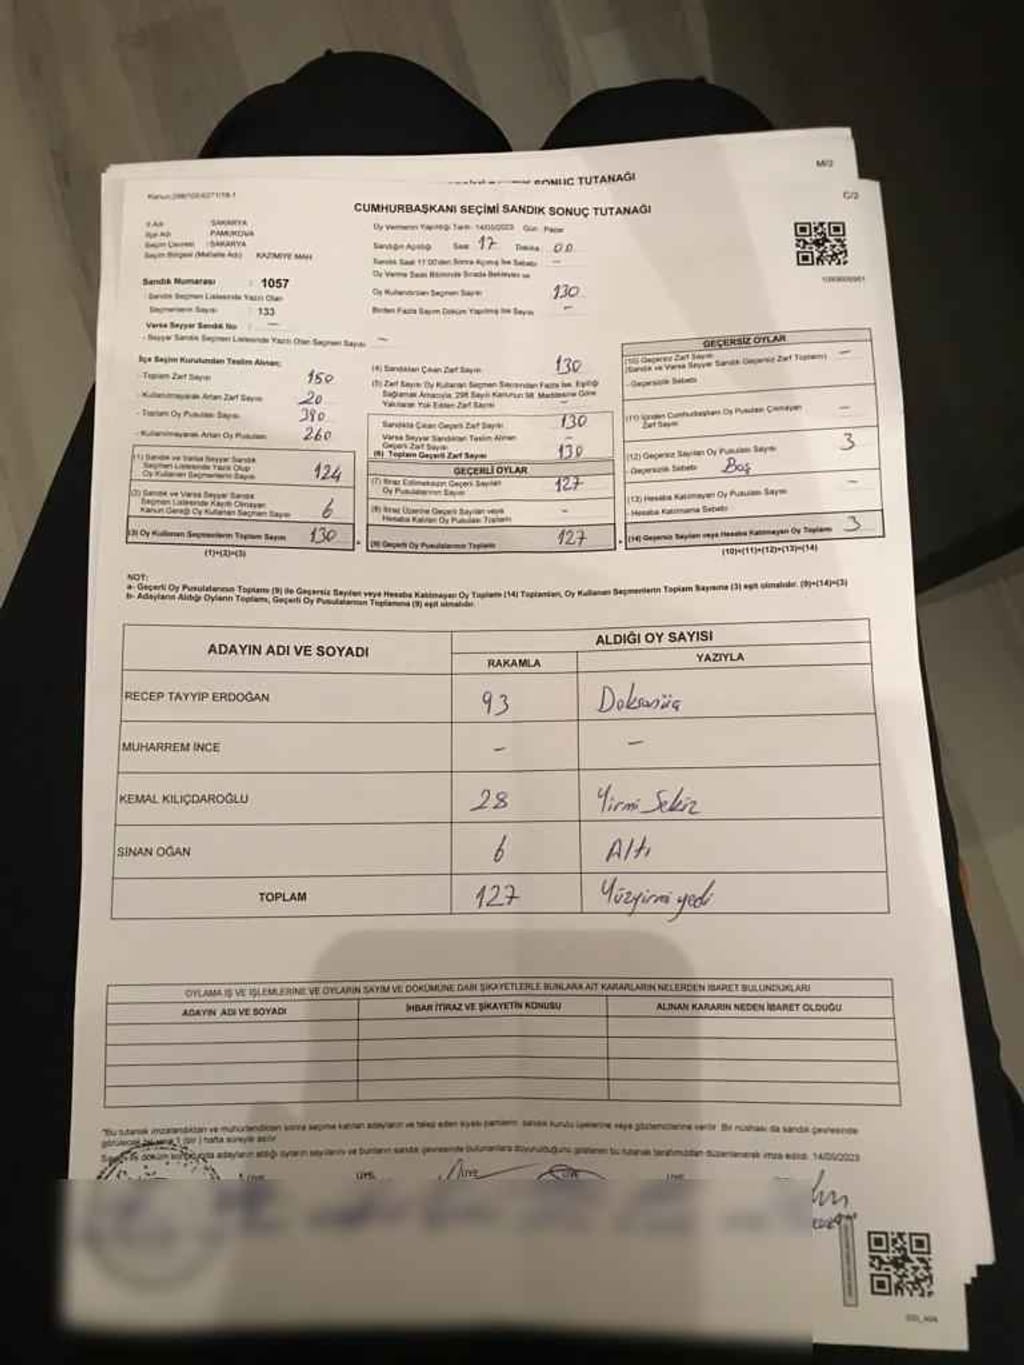 M/2
SONUÇ TUTANAĞI
C/2
CUMHURBAŞKANI SEÇİMİ SANDIK SONUÇ TUTANAĞI
İl Adı : SAKARYA
İlçe Adı : PAMUKOVA
Seçim Çevresi : SAKARYA
Seçim Bölgesi (Mahalle Adı) KAZIMİYE MAH
Sandık Numarası : 1057
Sandık Seçmen Listesinde Yazılı Olan
Seçmenlerin Sayısı : 133
Varsa Seyyar Sandık No : —
- Seyyar Sandık Seçmen Listesinde Yazılı Olan Seçmen Sayısı —
Oy Vermenin Yapıldığı Tarih: 14/05/2023 Gün: Pazar
Sandığın Açıldığı Saat 17 Dakika 00
Sandık Saat 17:00'den Sonra Açılmış İse Sebebi —
Oy Verme Saati Bitiminde Sırada Bekleyen ve
Oy Kullandırılan Seçmen Sayısı 130
Birden Fazla Sayım Döküm Yapılmış İse Sayısı —
İlçe Seçim Kurulundan Teslim Alınan;
- Toplam Zarf Sayısı 150
- Kullanılmayarak Artan Zarf Sayısı 20
- Toplam Oy Pusulası Sayısı 390
- Kullanılmayarak Artan Oy Pusulası 260
(1) Sandık ve Varsa Seyyar Sandık
Seçmen Listesinde Yazılı Olup
Oy Kullanan Seçmenlerin Sayısı 124
(2) Sandık ve Varsa Seyyar Sandık
Seçmen Listesinde Kayıtlı Olmayan
Kanun Gereği Oy Kullanan Seçmen Sayısı 6
(3) Oy Kullanan Seçmenlerin Toplam Sayısı 130
(1)+(2)=(3)
(4) Sandıktan Çıkan Zarf Sayısı 130
(5) Zarf Sayısı Oy Kullanan Seçmen Sayısından Fazla İse, Eşitliği
Sağlamak Amacıyla, 298 Sayılı Kanunun 98. Maddesine Göre
Yakılarak Yok Edilen Zarf Sayısı —
Sandıkta Çıkan Geçerli Zarf Sayısı 130
Varsa Seyyar Sandıktan Teslim Alınan
Geçerli Zarf Sayısı —
(6) Toplam Geçerli Zarf Sayısı 130
GEÇERLİ OYLAR
(7) İtiraz Edilmeksizin Geçerli Sayılan
Oy Pusulalarının Sayısı 127
(8) İtiraz Üzerine Geçerli Sayılan veya
Hesaba Katılan Oy Pusulaları Toplamı —
(9) Geçerli Oy Pusulalarının Toplamı 127
GEÇERSİZ OYLAR
(10) Geçersiz Zarf Sayısı —
(Sandık ve Varsa Seyyar Sandık Geçersiz Zarf Toplamı)
- Geçersizlik Sebebi
(11) İçinden Cumhurbaşkanı Oy Pusulası Çıkmayan
Zarf Sayısı —
(12) Geçersiz Sayılan Oy Pusulası Sayısı 3
- Geçersizlik Sebebi Boş
(13) Hesaba Katılmayan Oy Pusulası Sayısı —
- Hesaba Katılmama Sebebi
(14) Geçersiz Sayılan veya Hesaba Katılmayan Oy Toplamı 3
(10)+(11)+(12)+(13)=(14)
NOT:
a- Geçerli Oy Pusulalarının Toplamı (9) ile Geçersiz Sayılan veya Hesaba Katılmayan Oy Toplamı (14) Toplamları, Oy Kullanan Seçmenlerin Toplam Sayısına (3) eşit olmalıdır. (9)+(14)=(3)
b- Adayların Aldığı Oyların Toplamı, Geçerli Oy Pusulalarının Toplamına (9) eşit olmalıdır.
ADAYIN ADI VE SOYADI ALDIĞI OY SAYISI
RAKAMLA YAZIYLA
RECEP TAYYİP ERDOĞAN 93 Doksanüç
MUHARREM İNCE – –
KEMAL KILIÇDAROĞLU 28 Yirmi Sekiz
SİNAN OĞAN 6 Altı
TOPLAM 127 Yüzyirmi yedi
OYLAMA İŞ VE İŞLEMLERİNE VE OYLARIN SAYIM VE DÖKÜMÜNE DAİR ŞİKAYETLERLE BUNLARA AİT KARARLARIN NELERDEN İBARET BULUNDUKLARI
ADAYIN ADI VE SOYADI İHBAR İTİRAZ VE ŞİKAYETİN KONUSU ALINAN KARARIN NEDEN İBARET OLDUĞU
"Bu tutanak imzalandıktan ve mühürlendikten sonra seçime katılan adayların ve talep eden siyasi partilerin, sandık kurulu üyelerine veya gözlemcilerine verilir. Bir nüshası da sandık çevresinde
1 (bir) hafta süreyle asılır.
döküm adayların aldığı oyların sayılarını ve bunların sandık çevresinde bulunanlara duyurulduğunu gösteren bu tutanak tarafımızdan düzenlenerek imza edildi. 14/05/2023